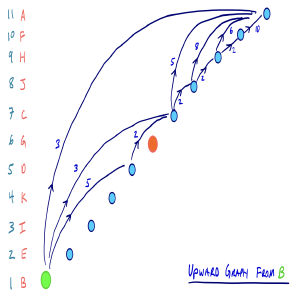 11 A
10 F
9 H
8 J
7 C
6 G
5 D
4 K
3 I
2 E
1 B
3
3
5
2
5
2
8
2
6
2
10
UPWARD GRAPH FROM B